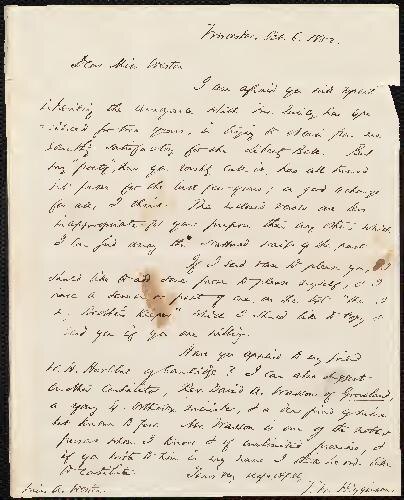 Worcester, Feb. 6, 1852.
Dear Miss Weston
I am afraid you will repent
inheriting the annoyance which Mrs. has
for two years, in trying to obtain from me
something satisfactory for the Liberty Bell. But
my "poetry", how you could call it, has all turned
into prose for the last few years; a good exchange
for all, I think. The enclosed verses are less
inappropriate for your purpose than any others which
I can find among the of the past.
If I send them to please you, I
should like to add some prose to please myself, & I
have a sermon or part of one, on the text "Am I
my Brother's Keeper" which I should like to copy &
send you if you are willing.
Have you applied to my friend
W. H. of Cambridge? I can also suggest
another contributor, Rev. David A. Wasson of Groveland,
a young Orthodox minister, & a dear friend of mine
but known to few. Mr. Wasson is one of the
persons whom I know & of unlimited promise, & if
if you write to him in my name I think he would like
to contribute.
Yours very respectfully,
T. W. Higginson.
Miss A. Weston.